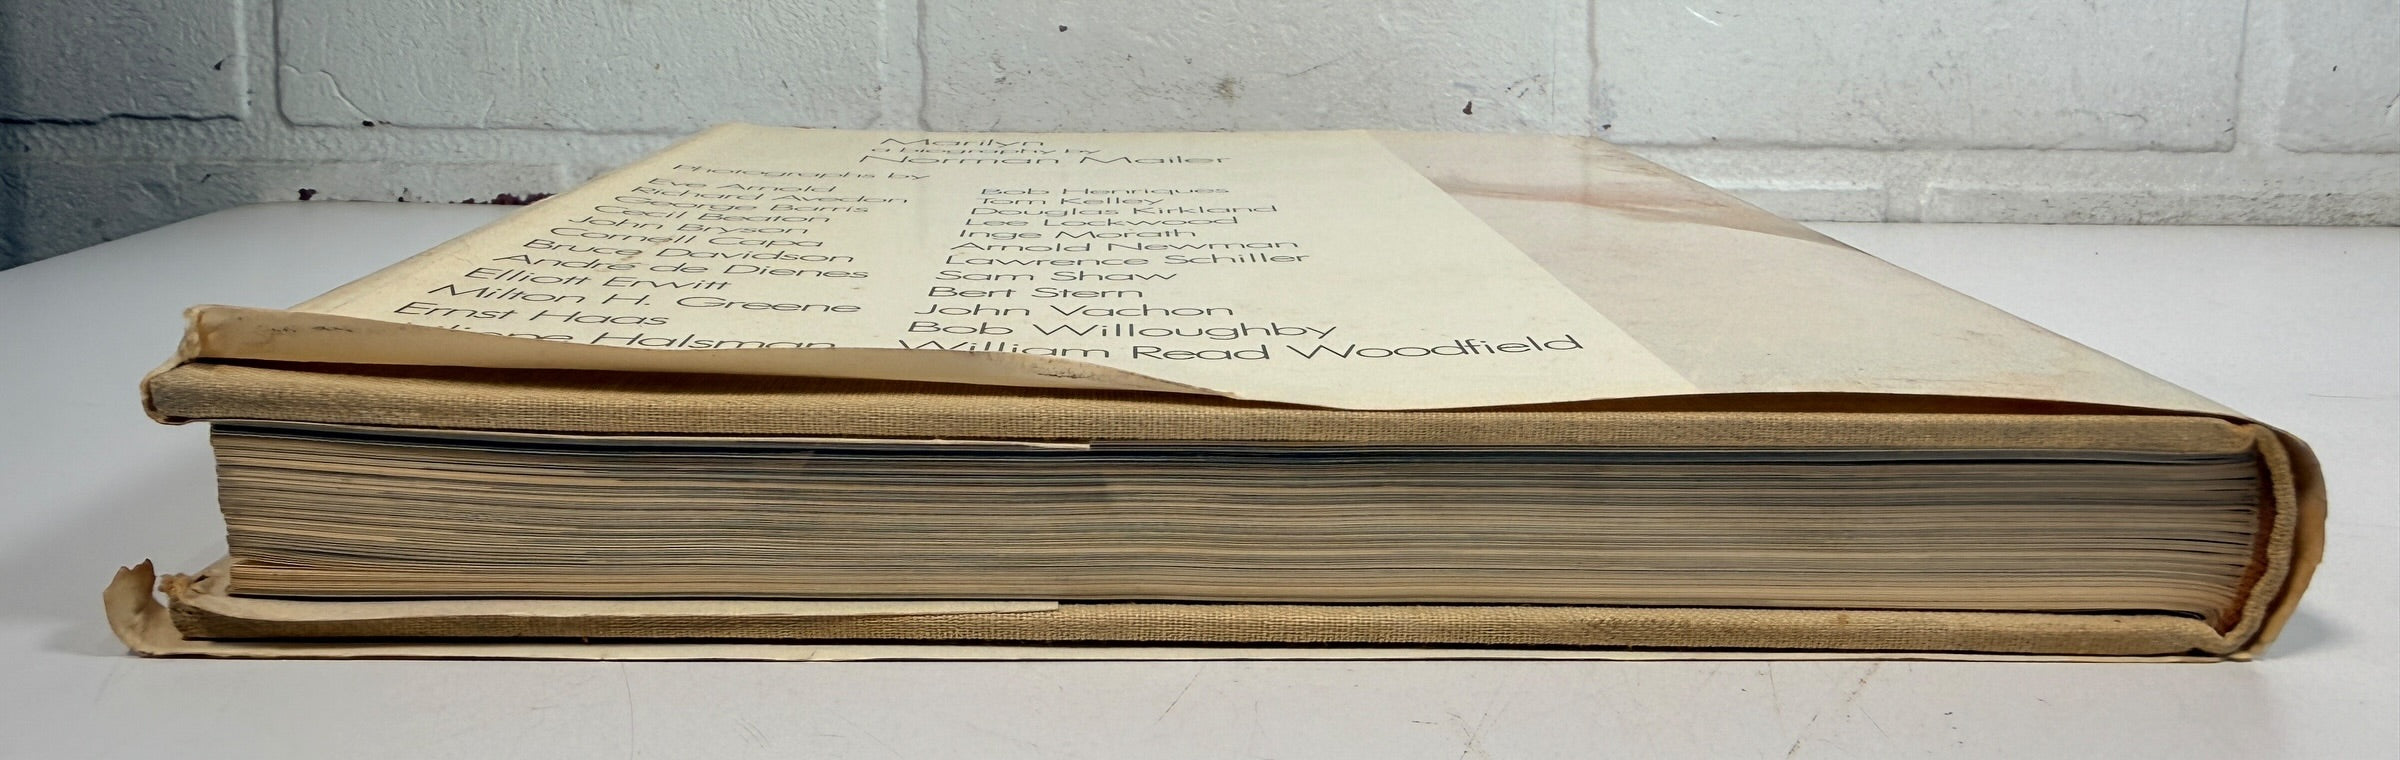 Marilyn
a biography by
Norman Mailer
Photographs by
Eve Arnold
Richard Avedon
George Barris
Cecil Beaton
John Bryson
Cornell Capa
Bruce Davidson
André de Dienes
Elliott Erwitt
Milton H. Greene
Ernst Haas
Halsman
Bob Henriques
Tom Kelley
Douglas Kirkland
Lee Lockwood
Inge Morath
Arnold Newman
Lawrence Schiller
Sam Shaw
Bert Stern
John Vachon
Bob Willoughby
William Read Woodfield